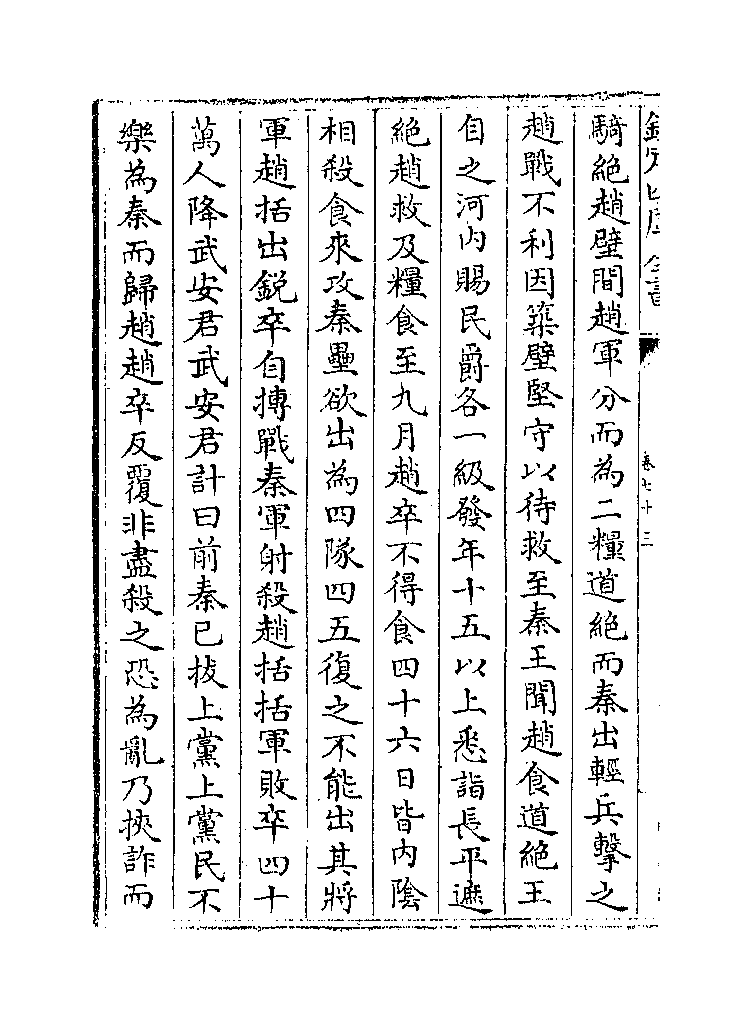 欽定四庫全書
卷七十三
騎絶趙壁間趙軍分而為二糧道絶而秦出輕兵擊之
趙戰不利因築壁堅守以待救至秦王聞趙食道絶王
自之河内賜民爵各一級發年十五以上悉詣長平遮
絶趙救及糧食至九月趙卒不得食四十六日皆内隂
相殺食來攻秦壘欲出為四隊四五復之不能出其將
軍趙括出鋭卒自搏戰秦軍射殺趙括括軍敗卒四十
萬人降武安君武安君計曰前秦已拔上黨上黨民不
樂為秦而歸趙趙卒反覆非盡殺之恐為亂乃挾詐而